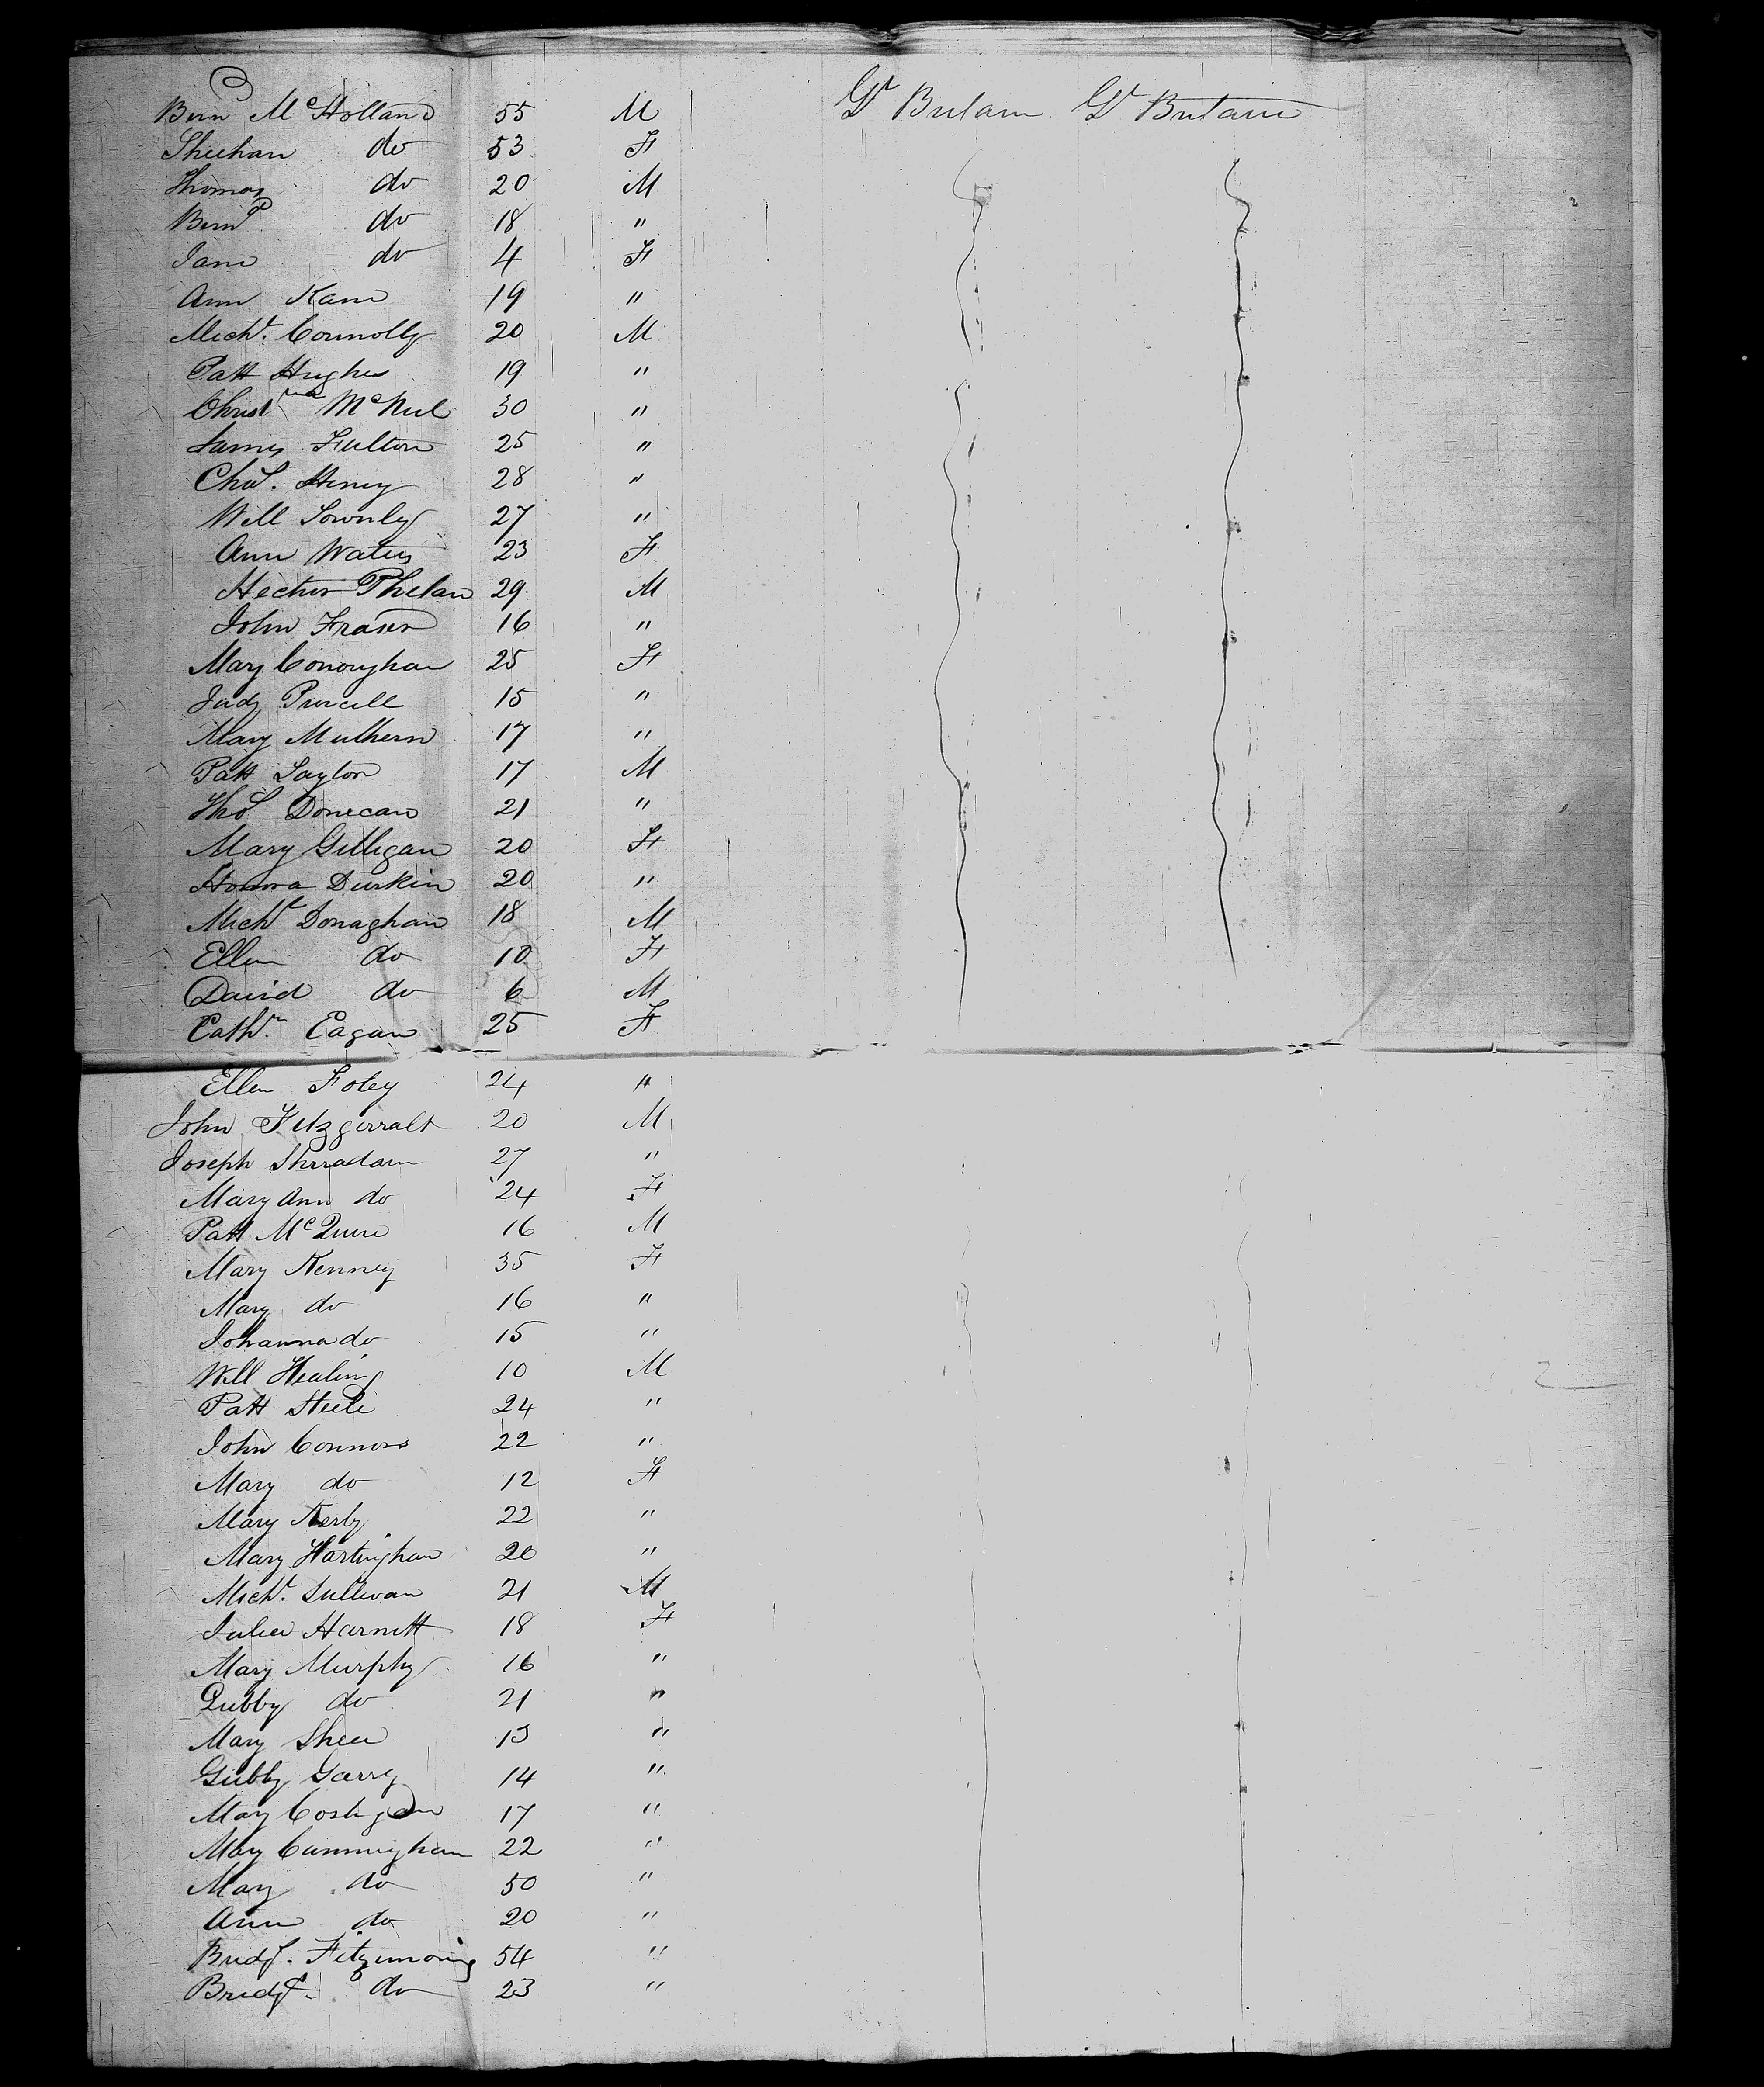 Bern McHolland 55 M Gt Britain Gt Britain
Sheehan do 53 F
Thomas do 20 M
Bernd do 18 "
Jane do 4 F
Ann Kane 19 "
Michl. Connolly 20 M
Patt Hughes 19 "
Christ McNeil 30 "
James Fulton 25 "
Chas. Henry 28 "
Will Townly 27 "
Ann Waters 23 F
Hector Phelan 29 M
John Fraser 16 "
Mary Conoughan 25 F
Judy Purcell 15 "
Mary Mulhern 17 "
Patt Laylor 17 M
Thos Donecan 21 "
Mary Gilligan 20 F
Honora Durkin 20 "
Michl Donaghan 18 M
Ellen do 10 F
David do 6 M
Cathn. Eagan 25 F
Ellen Foley 24 "
John Fitzgerralt 20 M
Joseph Sherradam 27 "
Mary Ann do 24 F
Patt McQuire 16 M
Mary Kenney 35 F
Mary do 16 "
Johanna do 15 "
Will Healing 10 M
Patt Steele 24 "
John Connors 22 "
Mary do 12 F
Mary Kerby 22 "
Mary Hartinghan 20 "
Michl. Sullivan 21 M
Julia Harnett 18 F
Mary Murphy 16 "
Qubby do 21 "
Mary Shea 13 "
Gubby Garry 14 "
Mary Costigan 17 "
Mary Cunningham 22 "
Mary do 50 "
Ann do 20 "
Bridgt. Fitzimong 54 "
Bridgt. do 23 "